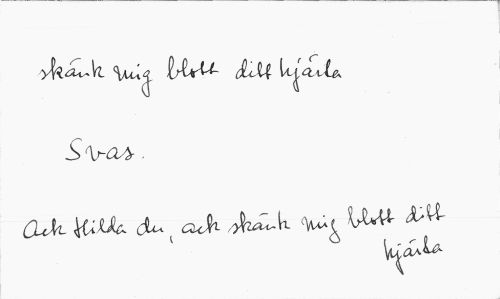 skänk mig blott ditt hjärta
Svar.
Ack Hilda du, ack skänk mig blott ditt
hjärta